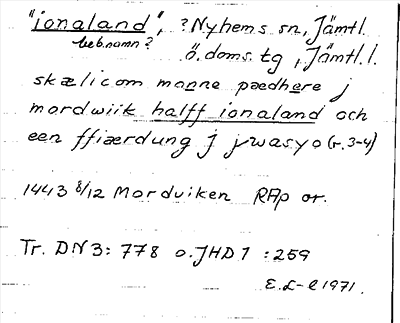 "ionaland", ? Nyhems sn, Jämtl.
beb.namn? ö. doms. tg, Jämtl. l.
skælicom manne pædhere j
mordwiik halff ionaland och
een ffiærdung j jwasyo (r. 3-4)
1443 8/12 Mordviken RAp or.
Tr. DN 3: 778 o. JHD 1 : 259
E. L-l 1971.